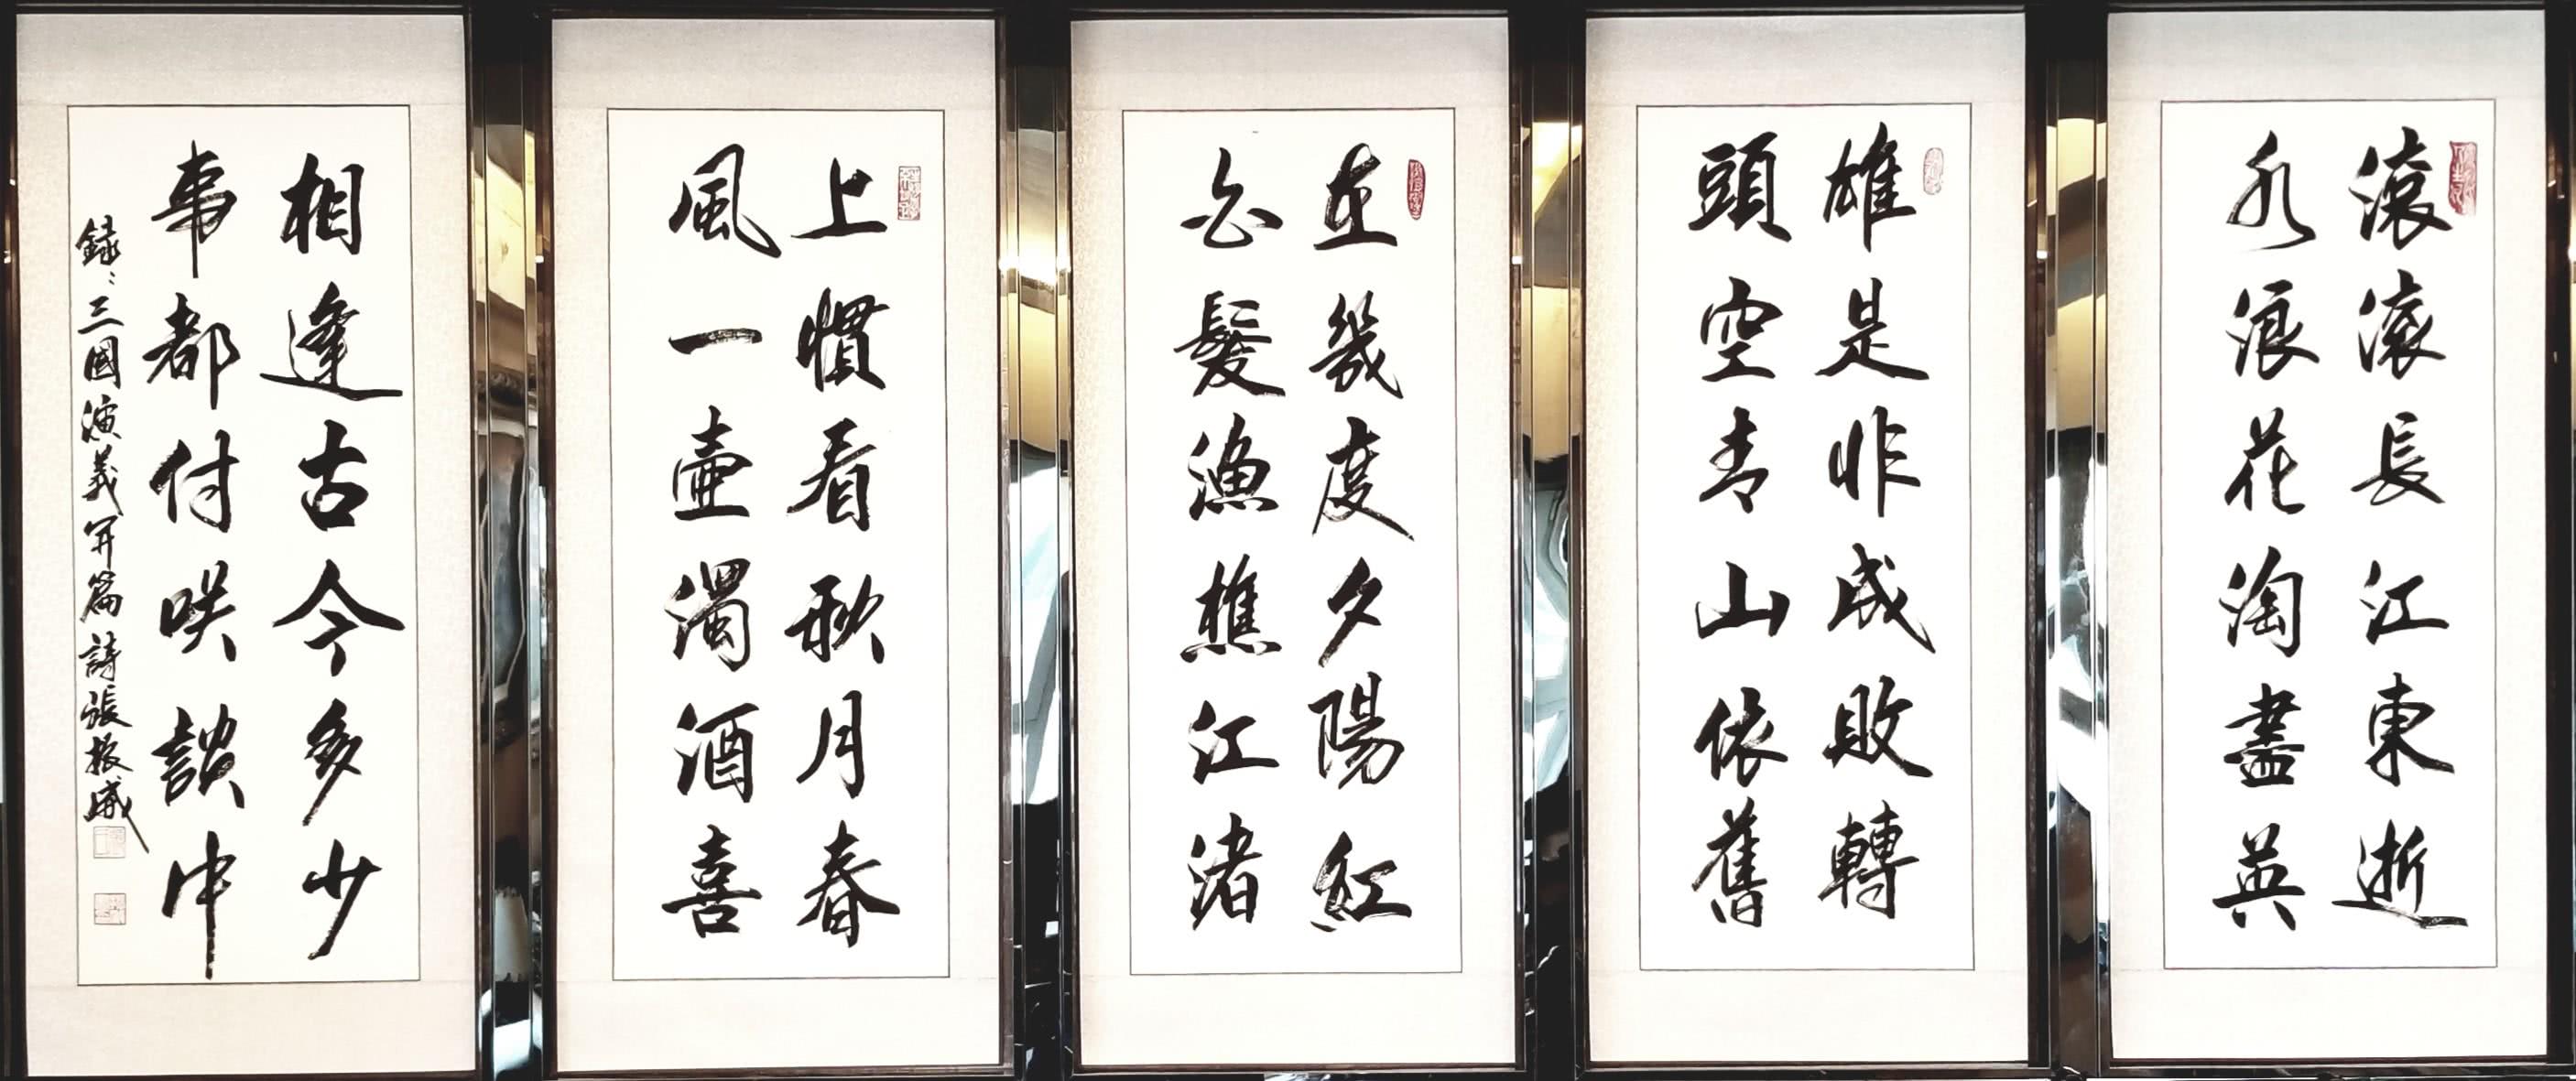 滾滾長江東逝
水浪花淘盡英
雄是非成敗轉
頭空青山依舊
在幾度夕陽紅
白髮漁樵江渚
上慣看秋月春
風一壺濁酒喜
相逢古今多少
事都付咲談中
録:三國演義開篇詩張振威